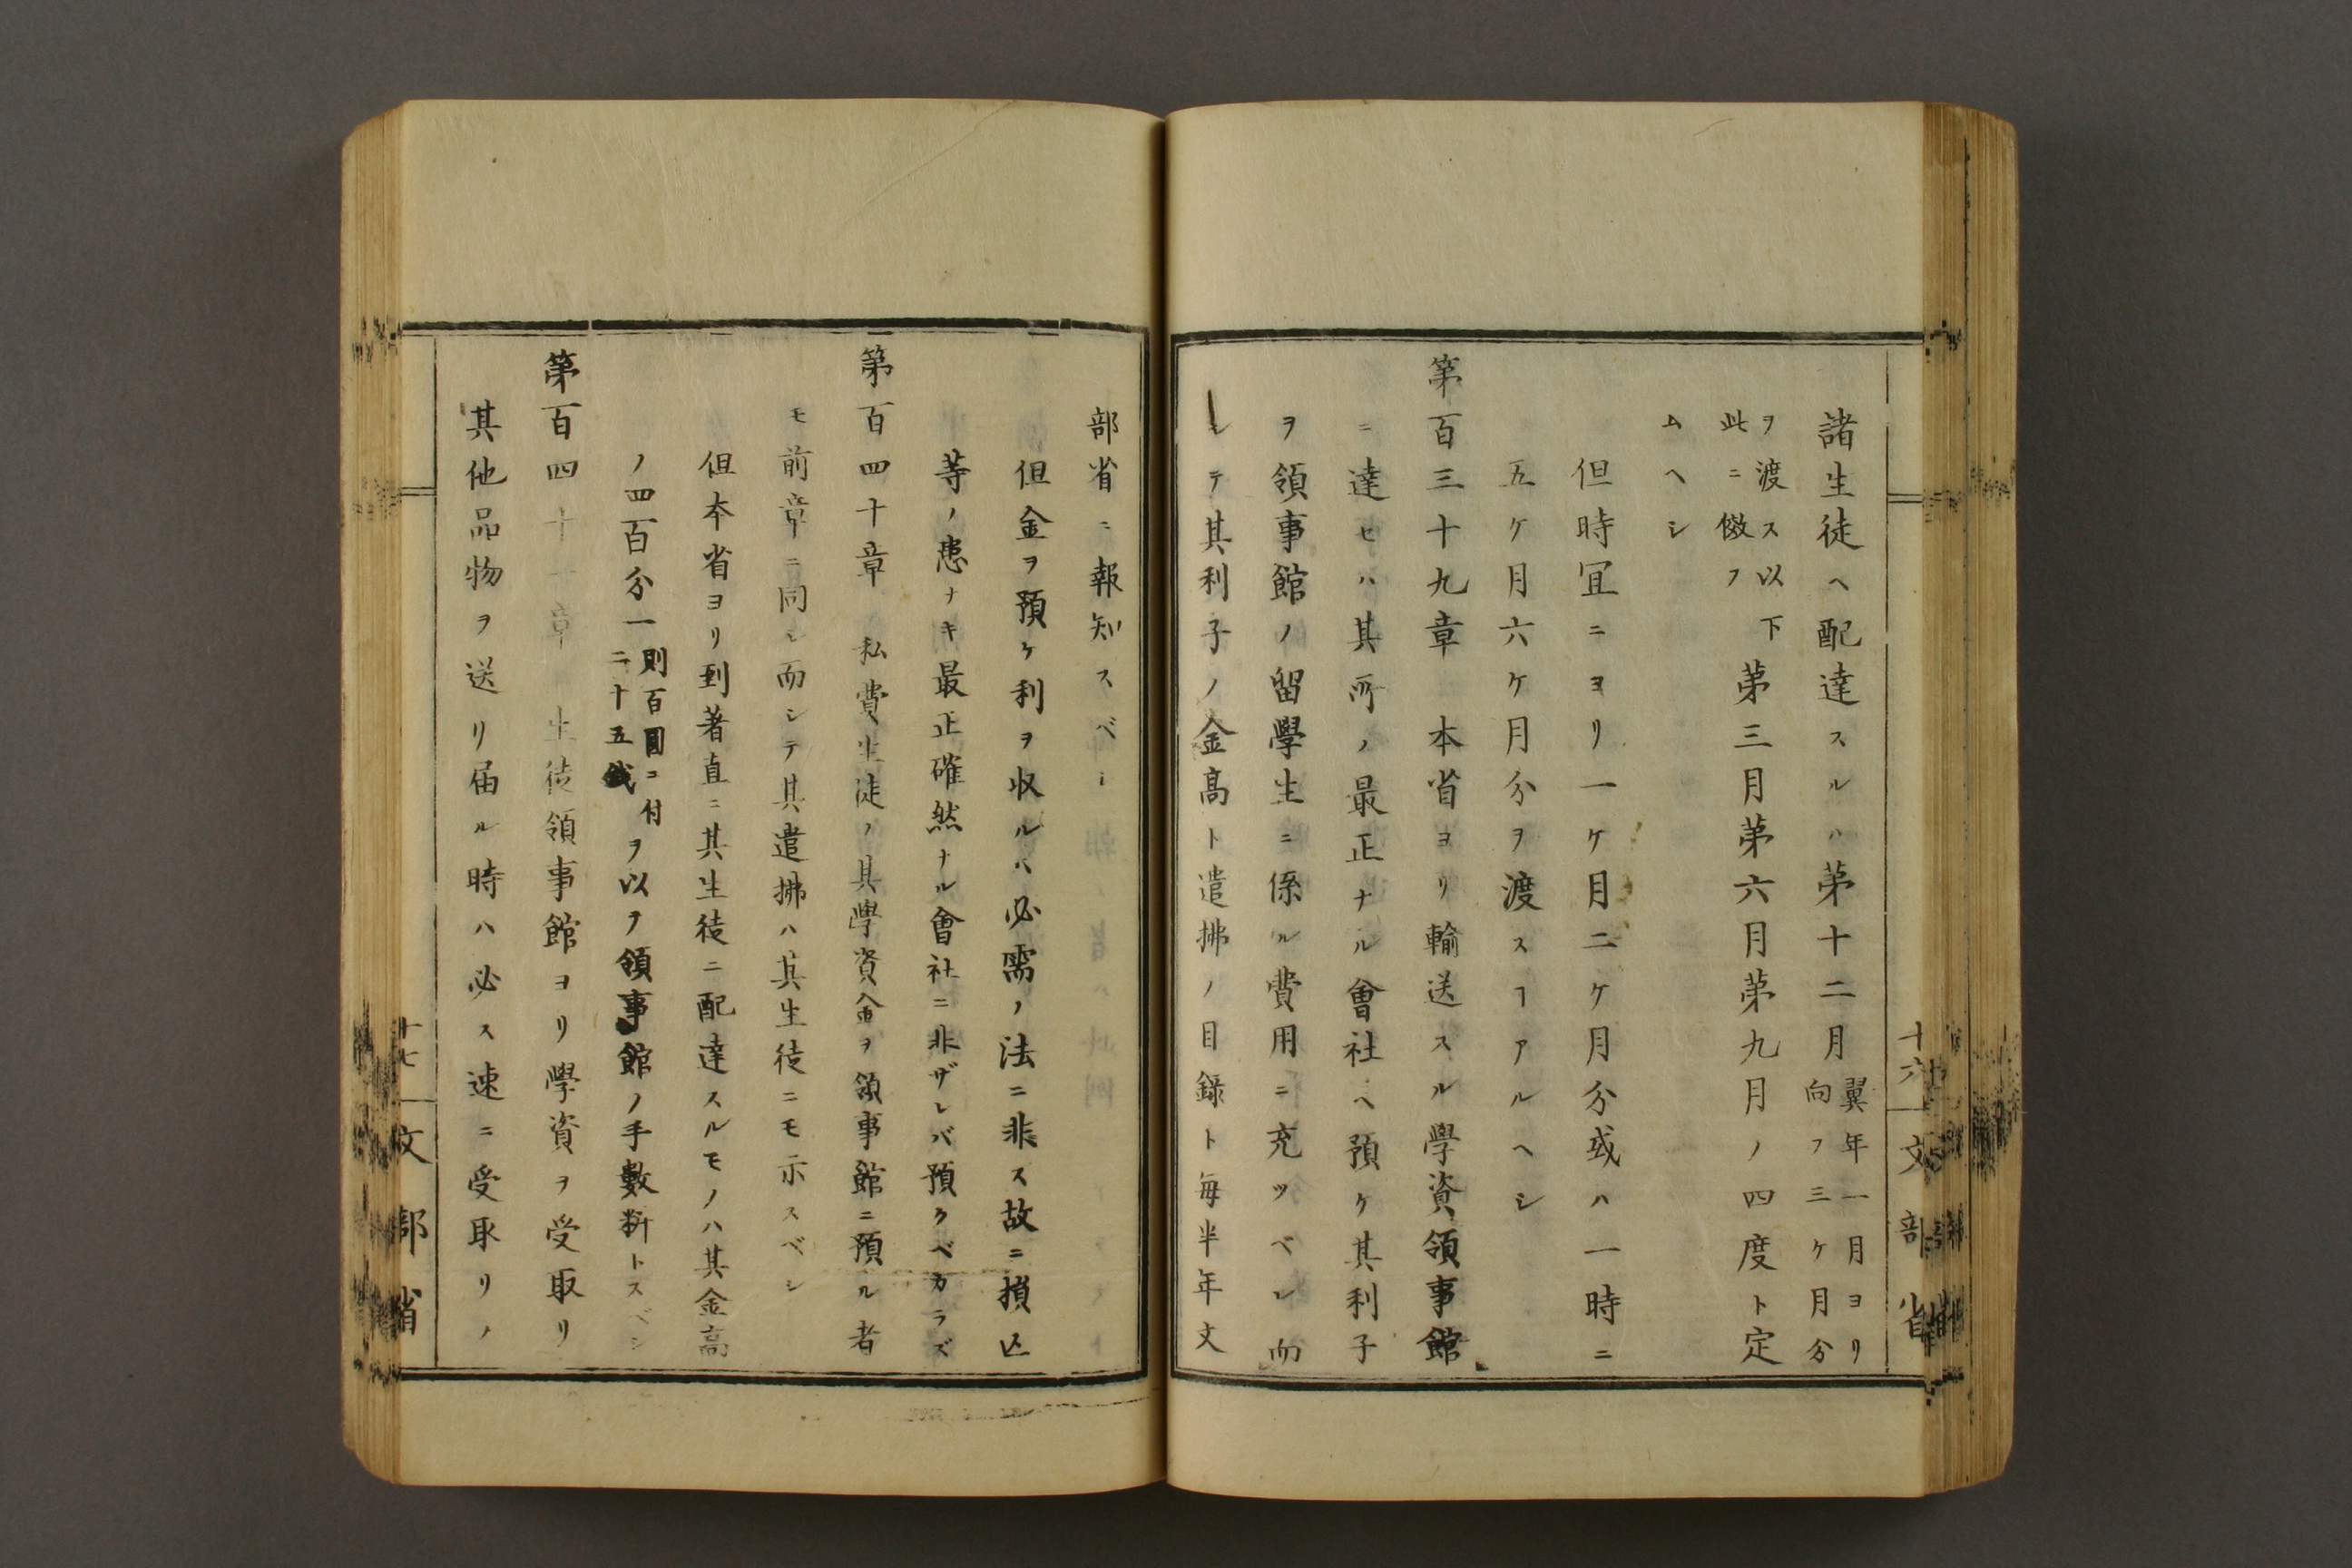 諸生徒ヘ配達スルハ第十二月翼年一月ヨリ向フ三ケ月分
ヲ渡ス以下此ニ傚フ第三月第六月第九月ノ四度ト定
ムヘシ
但時冝ニヨリ一ケ月二ケ月分或ハ一時ニ
五ケ月六ケ月分ヲ渡スヿアルヘシ
第百三十九章 本省ヨリ輸送スル學資領事館
ニ達セハ其所ノ最正ナル會社ヘ預ケ其利子
ヲ領事館ノ留學生ニ係ル費用ニ充ツベシ而
シテ其利子ノ金髙ト遣拂ノ目録ト毎半年文
十六 文部省
部省ニ報知スベシ
但金ヲ預ケ利ヲ収ルハ必需ノ法ニ非ス故ニ損亡
等ノ患ナキ最正確然ナル會社ニ非ザレバ預クベカラズ
第百四十章 私費生徒ノ其學資金ヲ領事館ニ預ル者
モ前章ニ同シ而シテ其遣拂ハ其生徒ニモ示スベシ
但本省ヨリ到著直ニ其生徒ニ配達スルモノハ其金高
ノ四百分一則百圓ニ付二十五銭ヲ以テ領事館ノ手數料トスベシ
第百四十一章 生徒領事館ヨリ學資ヲ受取リ
其他品物ヲ送リ届ル時ハ必ス速ニ受取リノ
十七 文部省